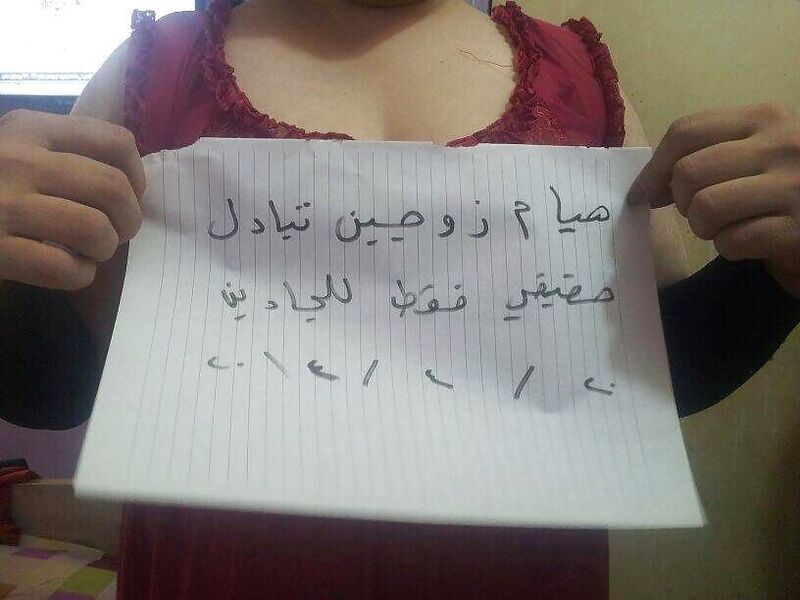 هيام زوجين تبادل
حقيقي فقط للجادين
٢٠ / ٤ / ٢٠١٤